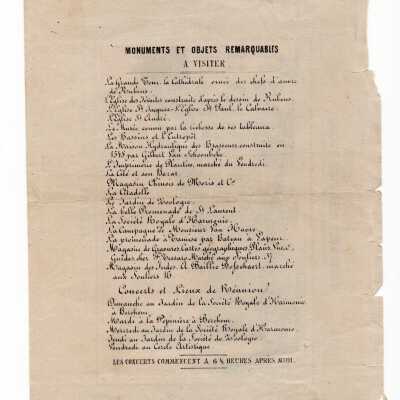 MONUMENTS ET OBJETS REMARQUABLES
A VISITER
La Grande Tour, la Cathédrale ornée des chefs d'œuvre
de Rubens.
L'Eglise des Jésuites construite d'après le dessin de Rubens.
L'Eglise St Jacques - l'Eglise St Paul, le Calvaire.
L'Eglise St André.
Le Musée connu par la richesse de ses tableaux.
Les Bassins et l'Entrepôt
La Maison Hydraulique des Brasseurs construite en
par Gilbert Van Schoonbeke.
L'Imprimerie de Plantin, marché du Vendredi.
La Cité et son Bazar
Magasin Chinois de Moris et Cie
La Citadelle
Le Jardin de Zoologie.
La belle Promenade de St Laurent
La Société Royale d'Harmonie.
La Campagne de Monsieur Van Havre
La promenade à Tamise par Bateau à Vapeur.
Magasin de Gravures, Cartes géographiques, Plans, Vues,
Guides chez Marché aux Souliers,
Magasin des Indes, A Baillie Bosschaert, marché
aux Souliers
Concerts et Lieux de Réunion
Dimanche au Jardin de la Société Royale d'Harmonie
à Berchem.
Mardi à la Pépinière à Berchem.
Mercredi au Jardin de la Société Royale d'Harmonie.
Jeudi au Jardin de la Société de Zoologie
Vendredi au Cercle Artistique
LES CONCERTS COMMENCENT A 6 ½ HEURES APRES MIDI.